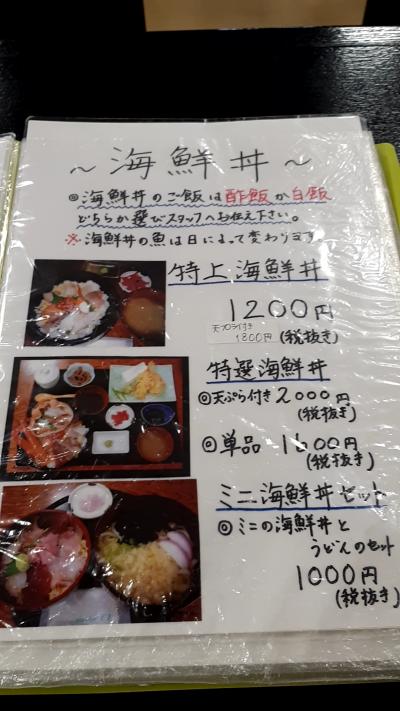 ～海鮮丼～
◎海鮮丼のご飯は酢飯か白飯
どちらか選びスタッフへお伝え下さい。
※海鮮丼の魚は日によって変わります。
特上海鮮丼
1200円
(税抜き)
天プラ付き
1800円
特選海鮮丼
◎天ぷら付き2000円
(税抜き)
◎単品 1600円
(税抜き)
ミニ海鮮丼セット
◎ミニの海鮮丼と
うどんのセット
1000円
(税抜き)